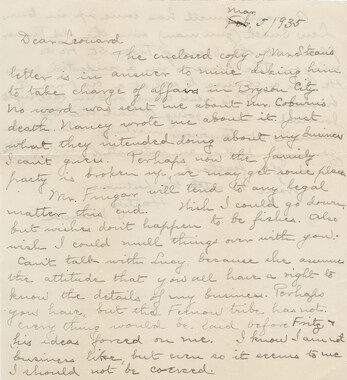 Mar
Feb. 5 1935
Dear Leonard
The enclosed copy of Mr. Stearns
letter is in answer to mine asking him
to take charge of affairs in Bryson City
No word was sent me about Mr. Coburns
death. Nancy wrote me about it. Just
what they intended doing about my business
I can't guess. Perhaps now the family
party is broken up, we may get some place.
Mr. Frugar will tend to any legal
matter this end. Wish I could go down,
but wishes don't happen to be fishes. Also
wish I could mull things over with you.
Can't talk with Lucy, because she assumes
the attitude that you all have a right to
know the details of my business. Perhaps
you have, but the Fernow tribe has not.
Every thing would be laid before Fritz &
his ideas forced on me. I know I am not
business like, but even so it seems to me
I should not be coerced.